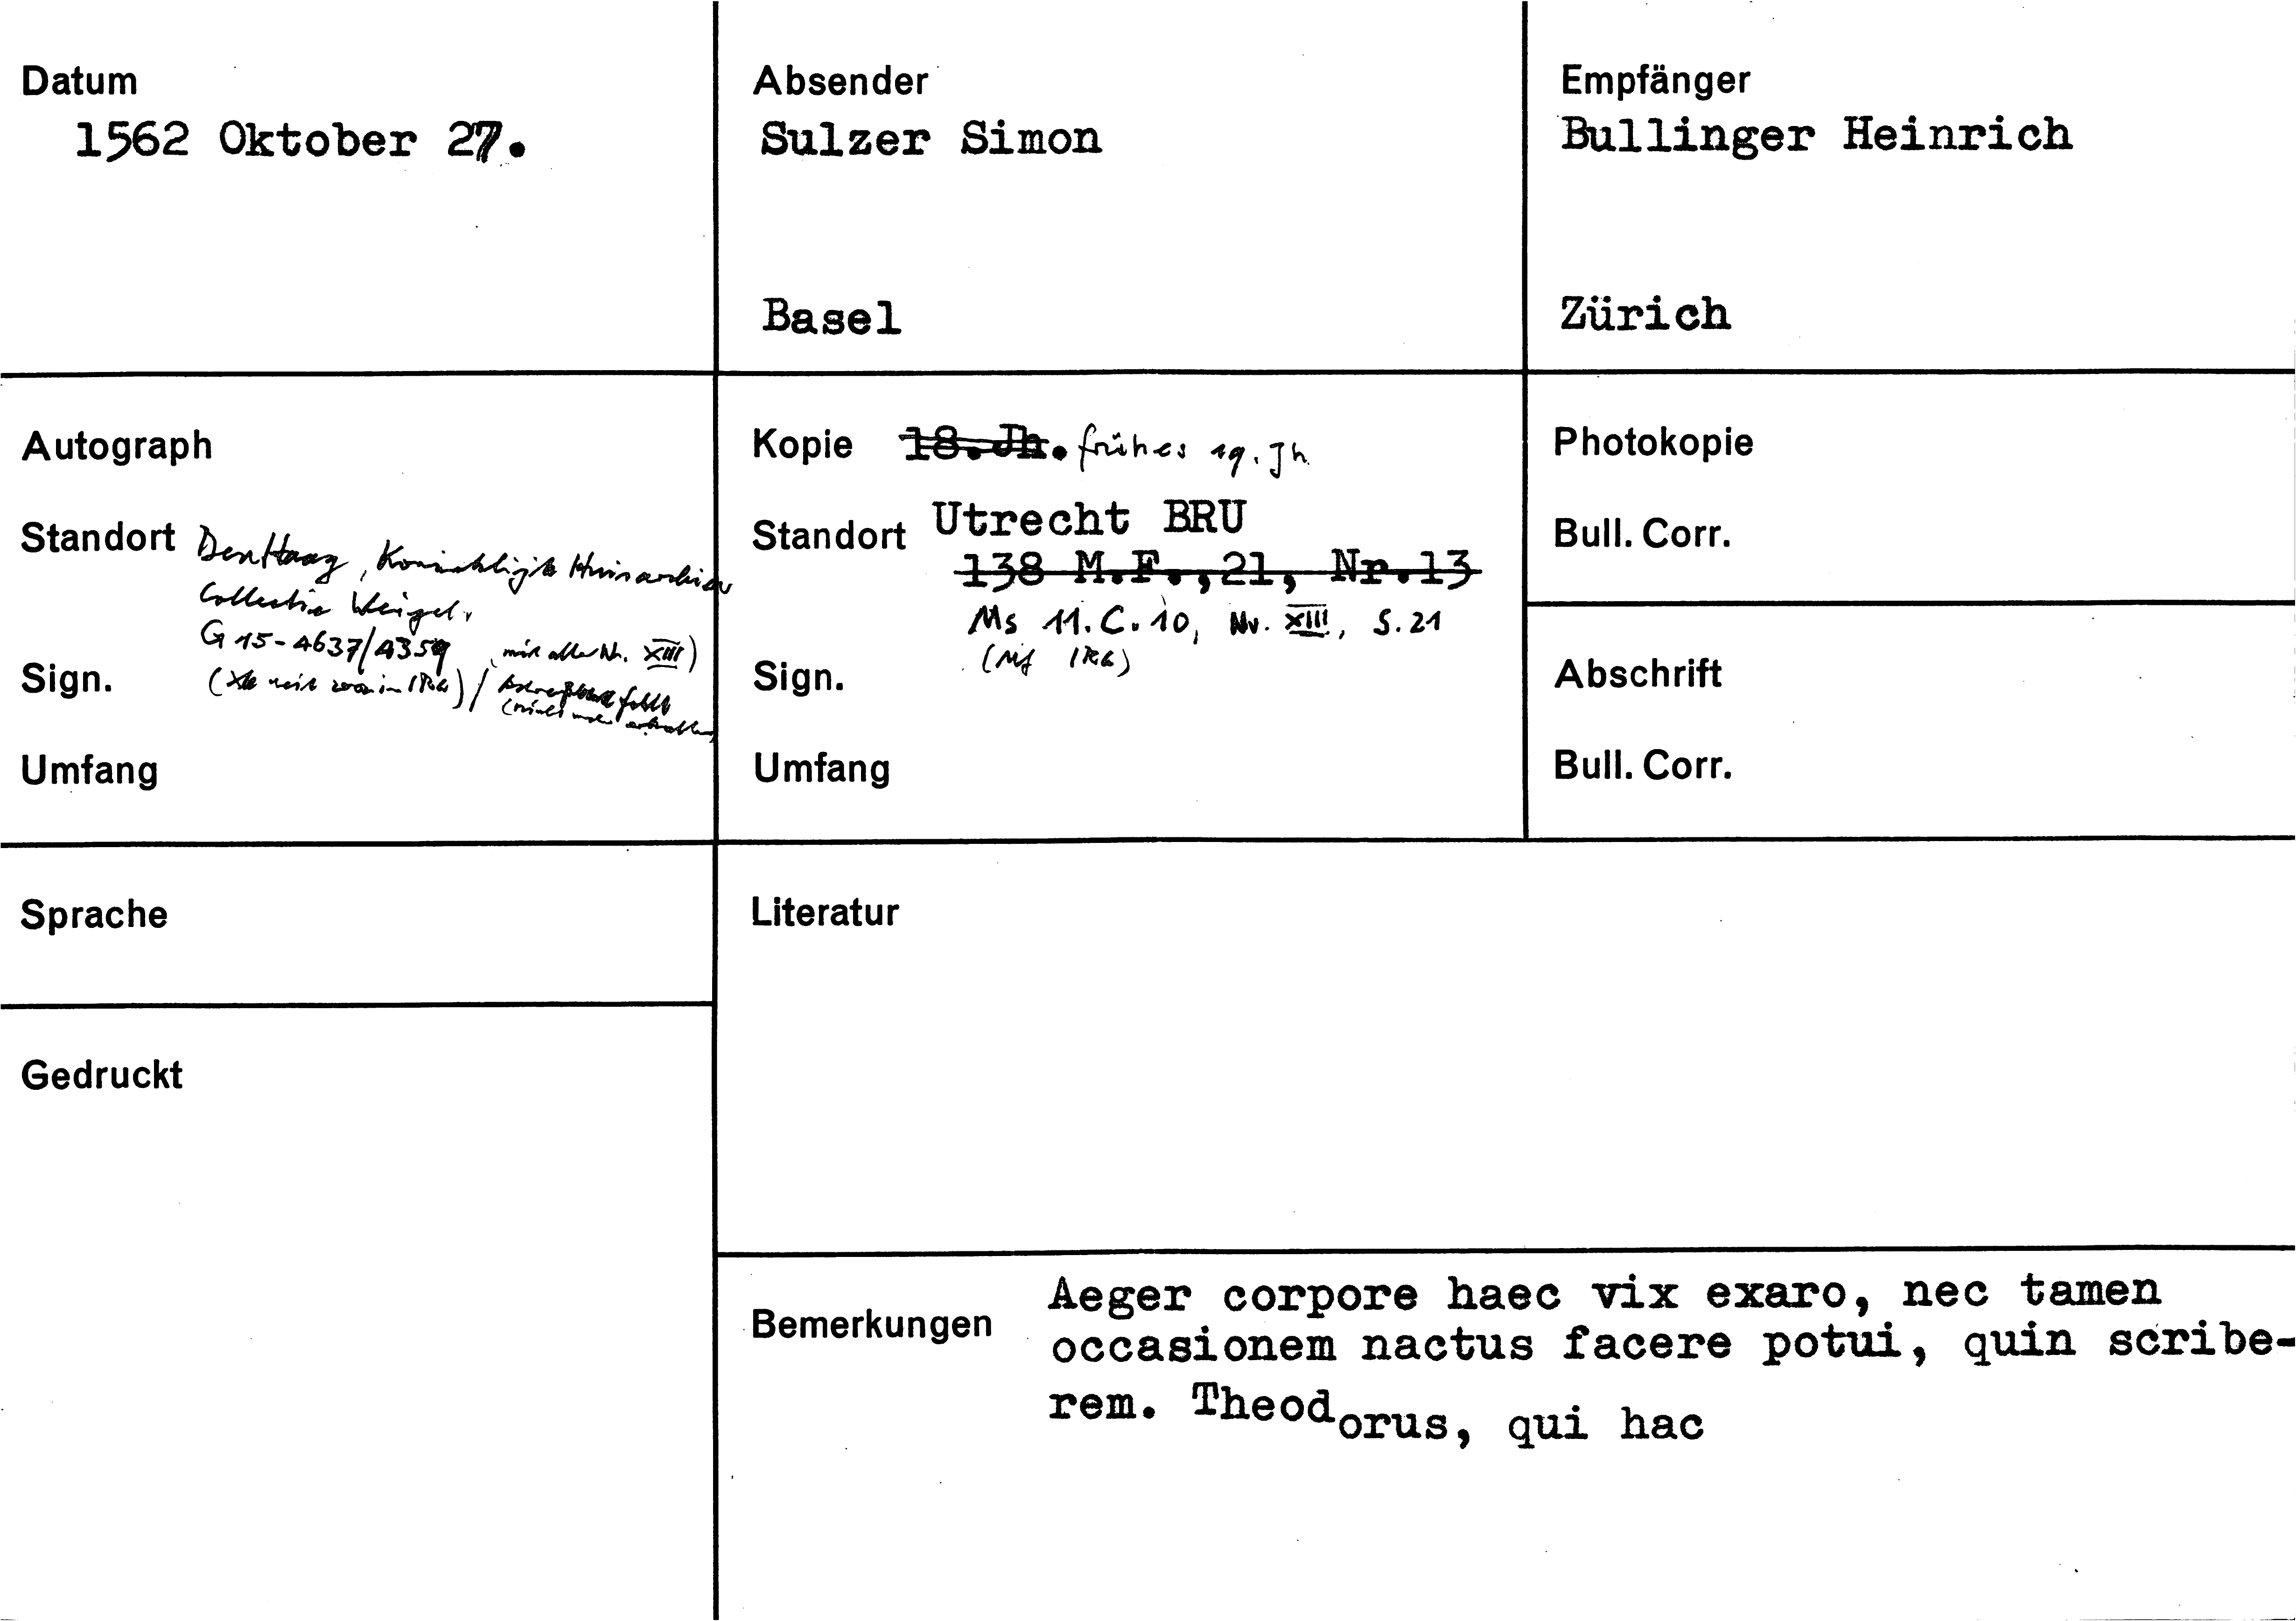 Datum
1562 Oktober 27.
Absender
Sulzer Simon
Basel
Empfänger
Bullinger Heinrich
Zürich
Autograph
Standort Den Haag, Koninklijk Huisarchiev
Collectie Weigel.
G 15-4637/4359 (mit alter Nr. XIII)
Sign. (Xk seit 2002 in IRG) / Adressblatt fehlt
(nicht mehr erhalten)
Umfang
Kopie 18. Jh. frühes 19. Jh.
Standort Utrecht BRU
138 M.F.,21, Nr.13
Ms 11.C.10, Nr. XIII, S.21
(Mf IRG)
Sign.
Umfang
Photokopie
Bull. Corr.
Abschrift
Bull. Corr.
Sprache
Literatur
Gedruckt
Bemerkungen
Aeger corpore haec vix exaro, nec tamen
occasionem nactus facere potui, quin scribe-
rem. Theodorus, qui hac